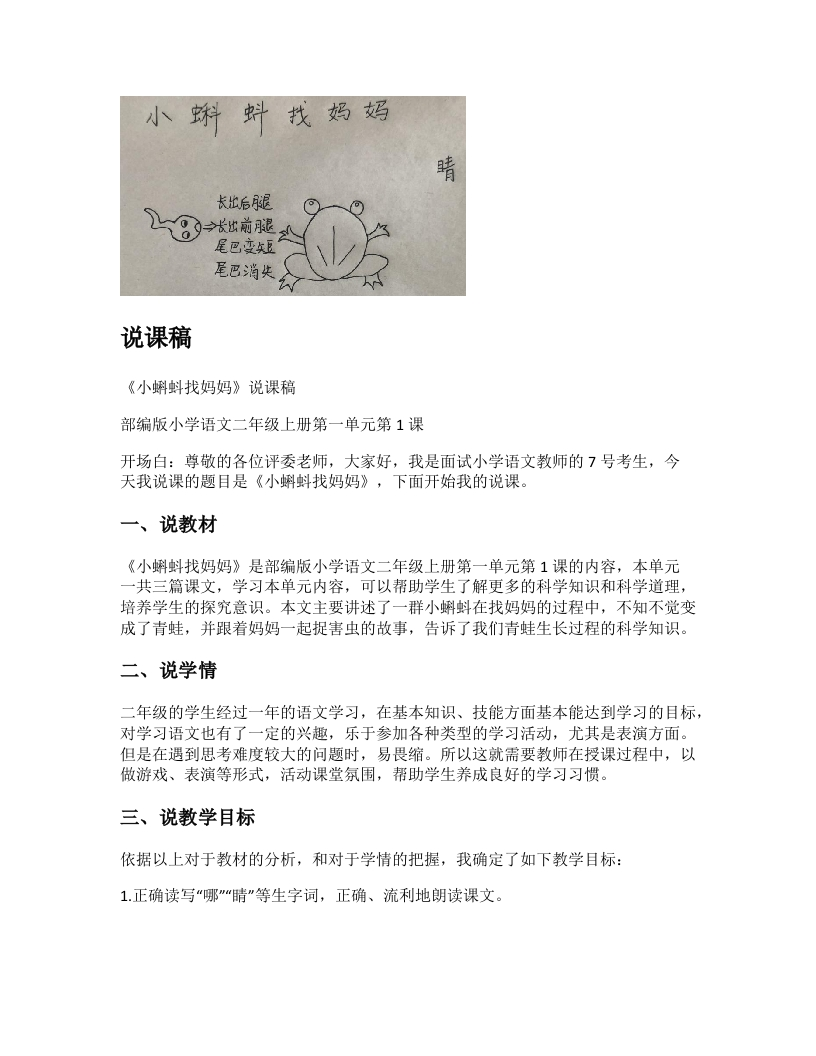 小蝌蚪找妈妈
睛
长出后腿
长出前腿
尾巴变短
尾巴消失
说课稿
《小蝌蚪找妈妈》说课稿
部编版小学语文二年级上册第一单元第 1 课
开场白：尊敬的各位评委老师，大家好，我是面试小学语文教师的 7 号考生，今
天我说课的题目是《小蝌蚪找妈妈》，下面开始我的说课。
一、说教材
《小蝌蚪找妈妈》是部编版小学语文二年级上册第一单元第 1 课的内容，本单元
一共三篇课文，学习本单元内容，可以帮助学生了解更多的科学知识和科学道理，
培养学生的探究意识。本文主要讲述了一群小蝌蚪在找妈妈的过程中，不知不觉变
成了青蛙，并跟着妈妈一起捉害虫的故事，告诉了我们青蛙生长过程的科学知识。
二、说学情
二年级的学生经过一年的语文学习，在基本知识、技能方面基本能达到学习的目标，
对学习语文也有了一定的兴趣，乐于参加各种类型的学习活动，尤其是表演方面。
但是在遇到思考难度较大的问题时，易畏缩。所以这就需要教师在授课过程中，以
做游戏、表演等形式，活动课堂氛围，帮助学生养成良好的学习习惯。
三、说教学目标
依据以上对于教材的分析，和对于学情的把握，我确定了如下教学目标：
1.正确读写“哪”“睛”等生字词，正确、流利地朗读课文。